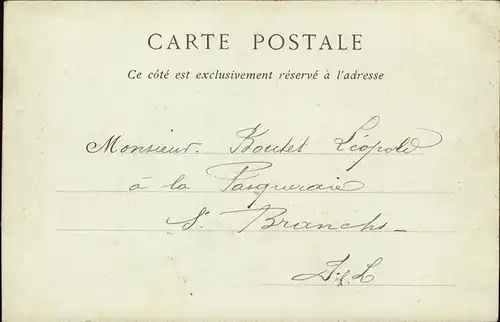 CARTE POSTALE
Ce côté est exclusivement réservé à l'adresse
Monsieur. Boutet Léopold
à la Pasqueraie
St. Branchs
I & L